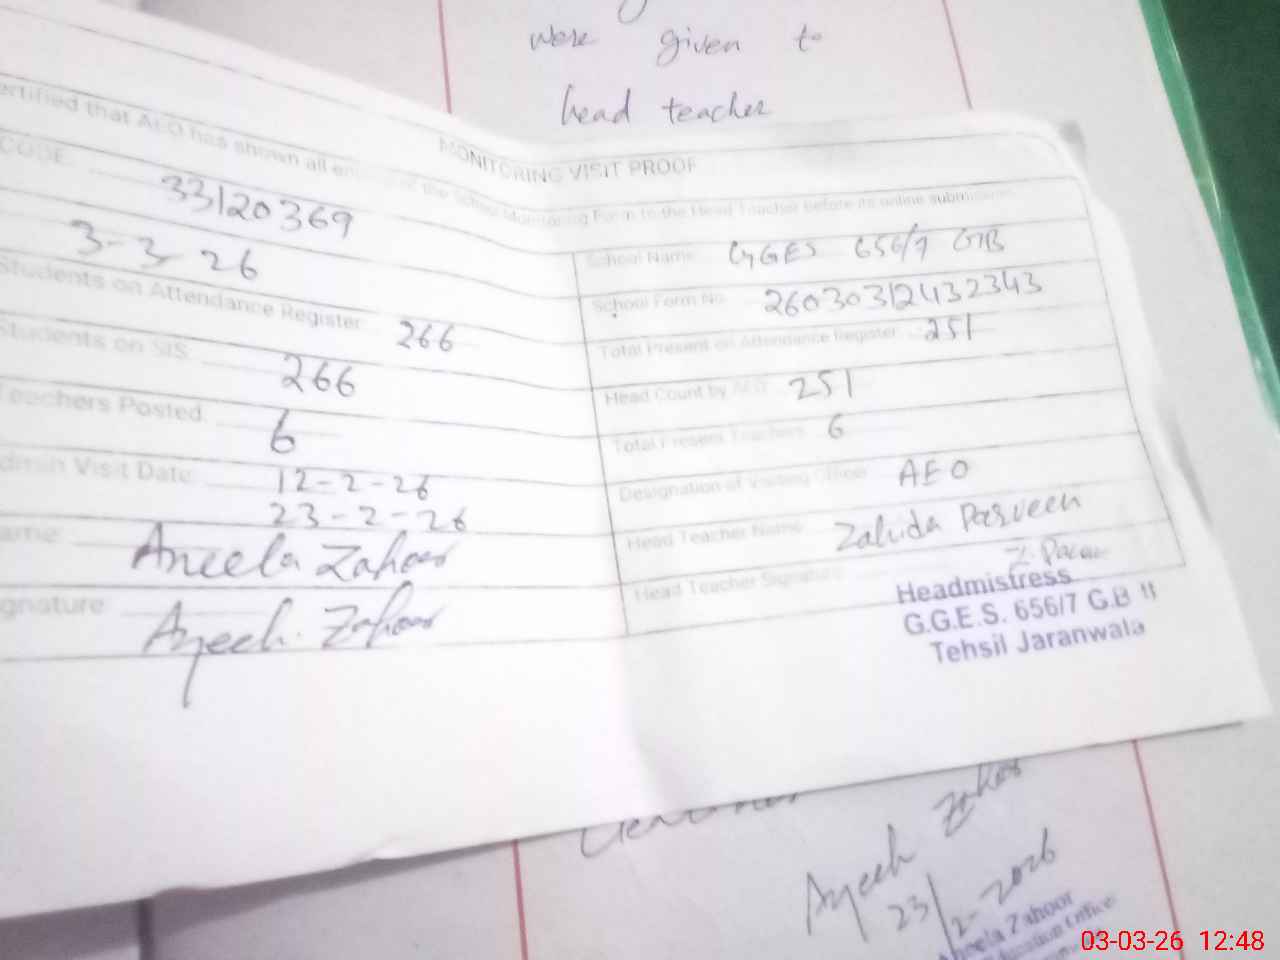 were given to
head teacher
MONITORING VISIT PROOF
ertified that AEO has shown all of the School Monitoring Form to the Head Teacher before its online submission
CODE 33120369
3-3-26
Students on Attendance Register 266
Students on SIS 266
Teachers Posted 6
dmin Visit Date 12-2-26
23-2-26
ame Aneela Zahoor
gnature
School Name GGES 656/7 GB
School Form No 26030312432343
Total Present on Attendance Register 251
Head Count by AEO 251
Total Present Teachers 6
Designation of Visiting Officer AEO
Head Teacher Name Zahida Parveen
Head Teacher Signature
Headmistress
G.G.E.S. 656/7 G.B
Tehsil Jaranwala
23/2-2026
Aneela Zahoor
Education Officer
03-03-26 12:48